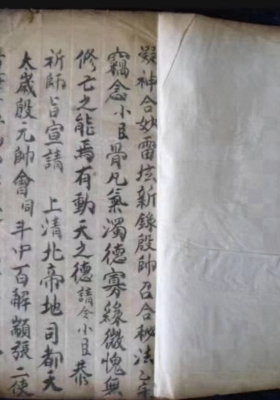 凝神合妙雷坛新錄殷帥召合秘法
竊念小臣骨凡氣濁德寡緣微愧無
修亡之能焉有動天之德請令小臣恭
祈師旨宣請　上清北帝地司都天
太歲殷元帥會同斗中百解顓張二使